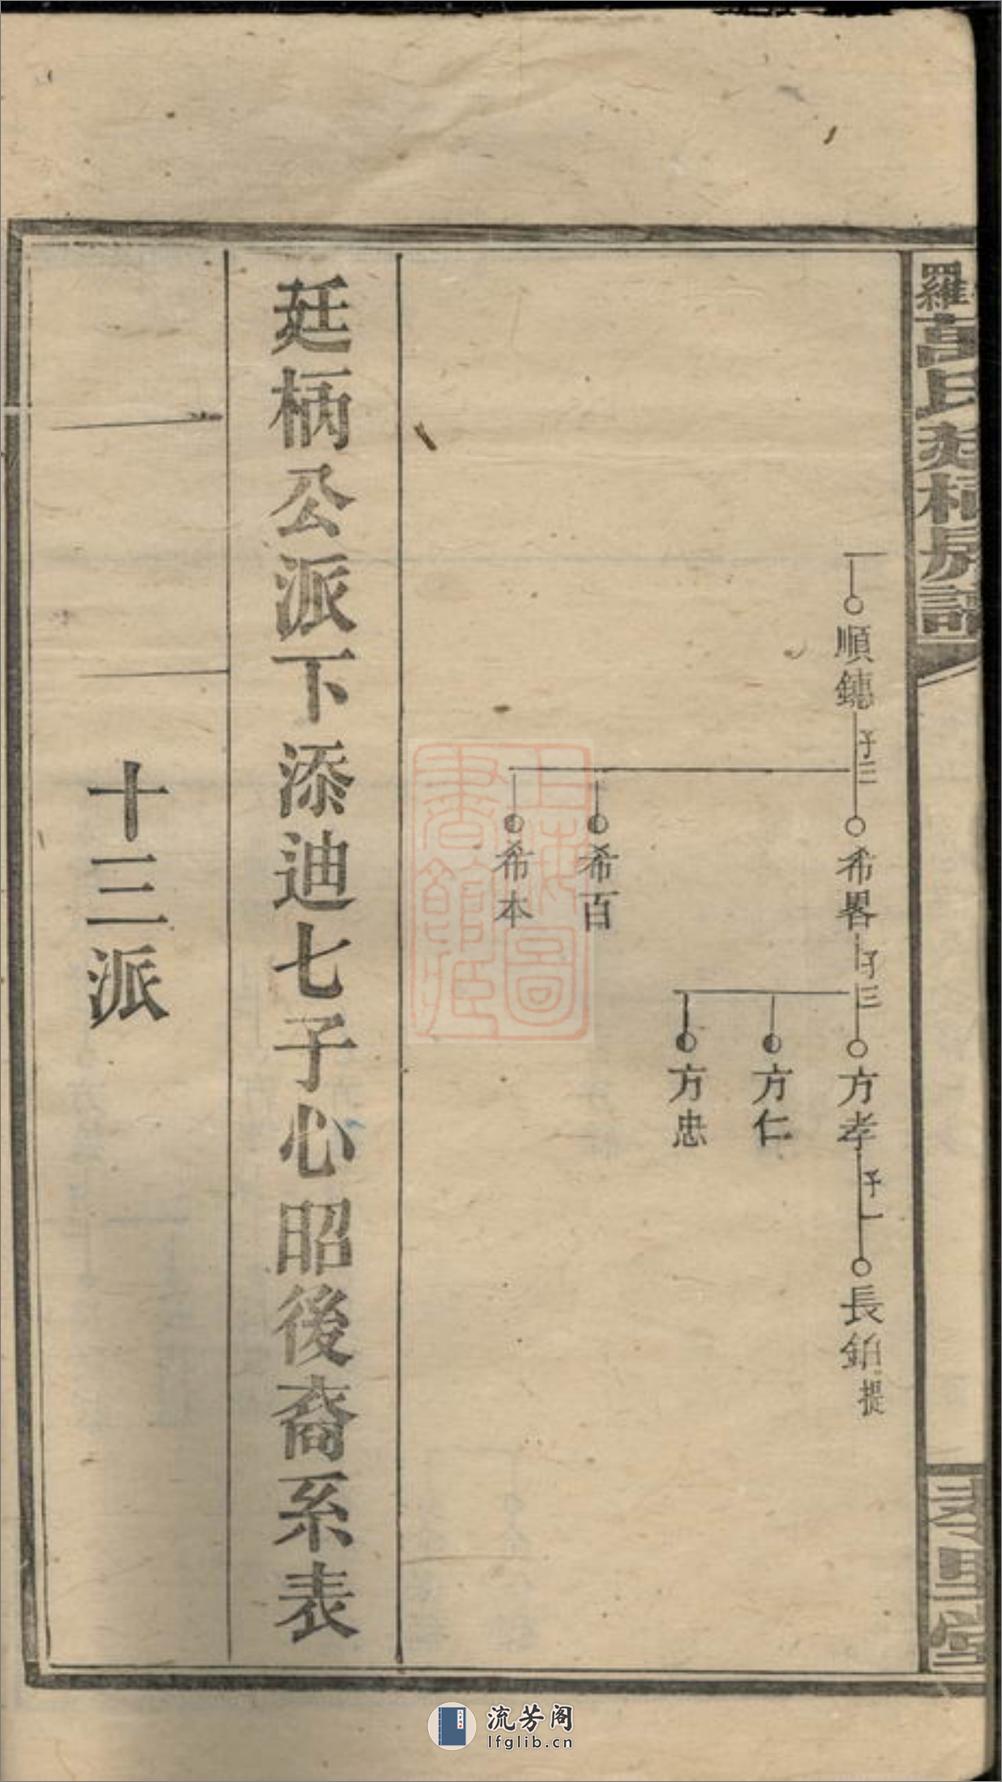 羅萬氏廷柄房譜
順鏸
子三
希畧
子三
方孝
子一
長鉑
提
方仁
方忠
希百
希本
廷柄公派下添迪七子心昭後裔系表
十三派
上海圖書館藏
流芳阁
lfglib.cn